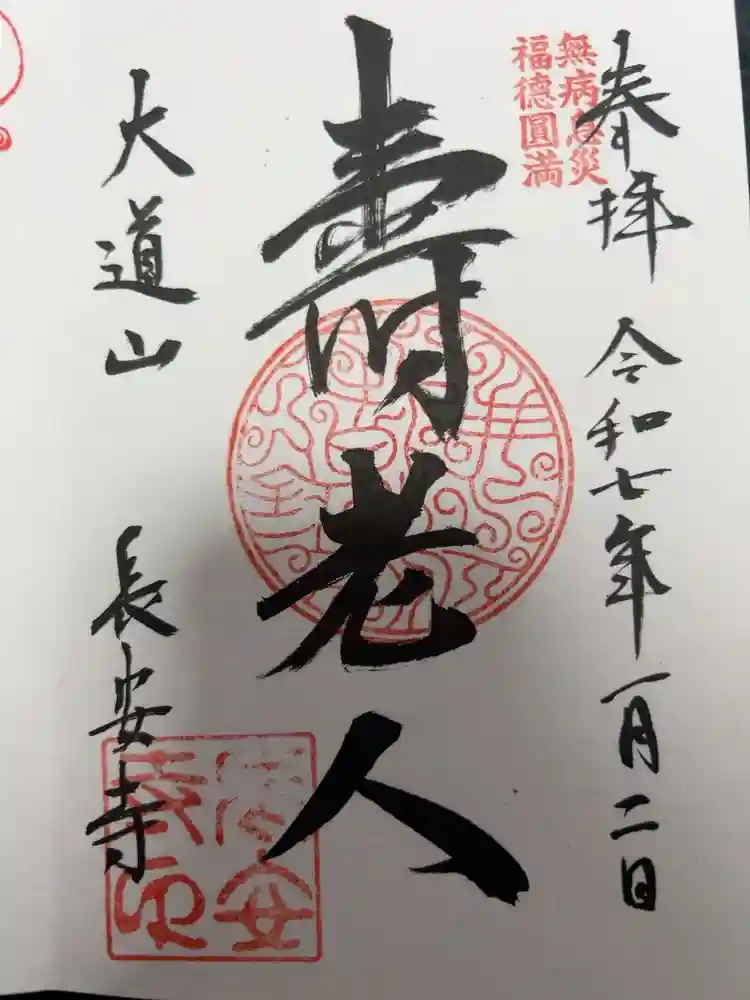 奉拝 令和七年一月二日
無病息災
福德圓満
壽老人
大道山 長安寺